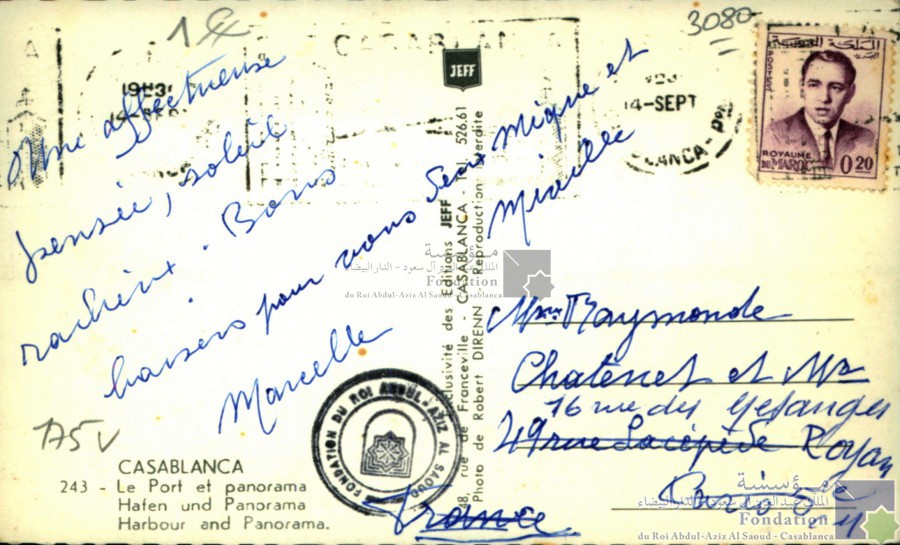 1
3080
CASABLANCA
19H30
14-SEPT
14-SEPT
CASABLANCA-POSTES
المملكة المغربية
POSTES
ROYAUME
DU MAROC
0.20
JEFF
Une affectueuse
pensée, soleil
radieux. Bons
baisers pour vous deux Mique et
Mireille
Marcelle
175 v
CASABLANCA
243 - Le Port et panorama
Hafen und Panorama
Harbour and Panorama.
Exclusivité des Editions JEFF
rue de Franceville - CASABLANCA - Tél. 526.61
Photo de Robert DIRENN Reproduction Interdite
FONDATION DU ROI ABDUL-AZIZ AL SAOUD
Mme Raymonde
Chatenet et Mr
16 rue des Mésanges
49 rue Lacépède Royan
Paris 5e
France
مؤسسة
الملك عبد العزيز آل سعود - الدار البيضاء
Fondation
du Roi Abdul-Aziz Al Saoud - Casablanca
مؤسسة
الملك عبد العزيز آل سعود - الدار البيضاء
Fondation
du Roi Abdul-Aziz Al Saoud - Casablanca